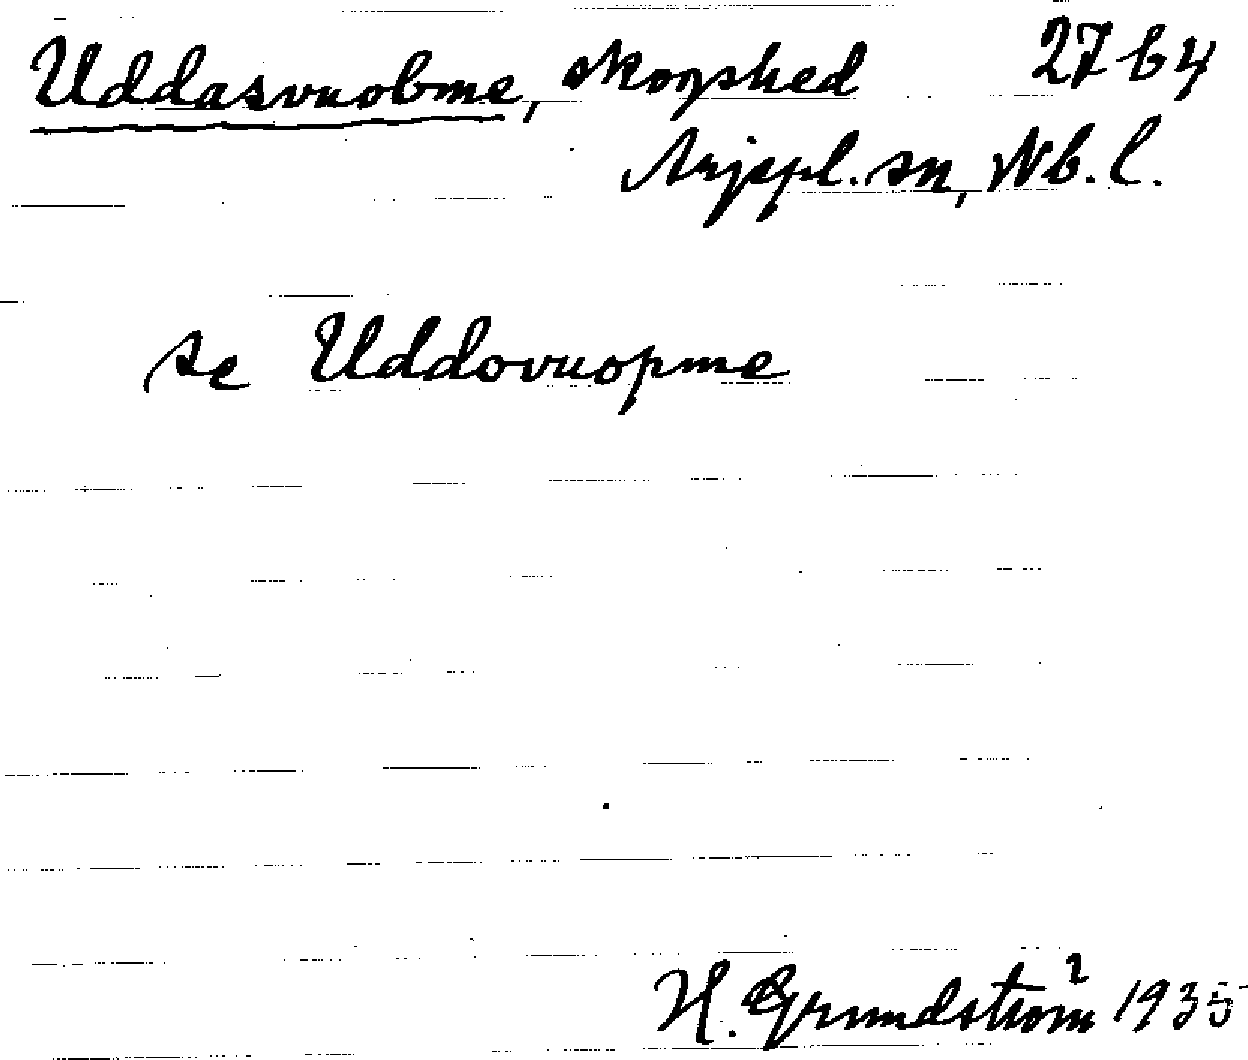 Uddasvuobme, skogshed 27 b 4
Arjepl. sn, Nb. l.
se Uddovuopme
H. Grundström 1935